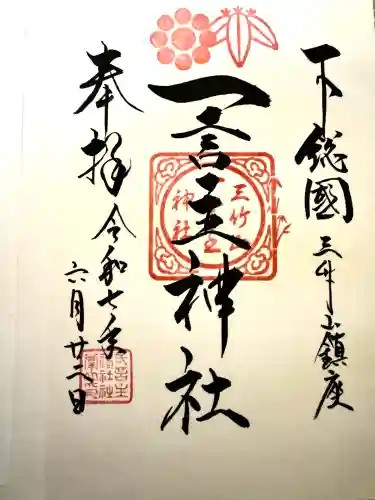 下総國
三竹山鎮座
一言主神社
三竹山
神社
奉拝
令和七年
六月廿二日